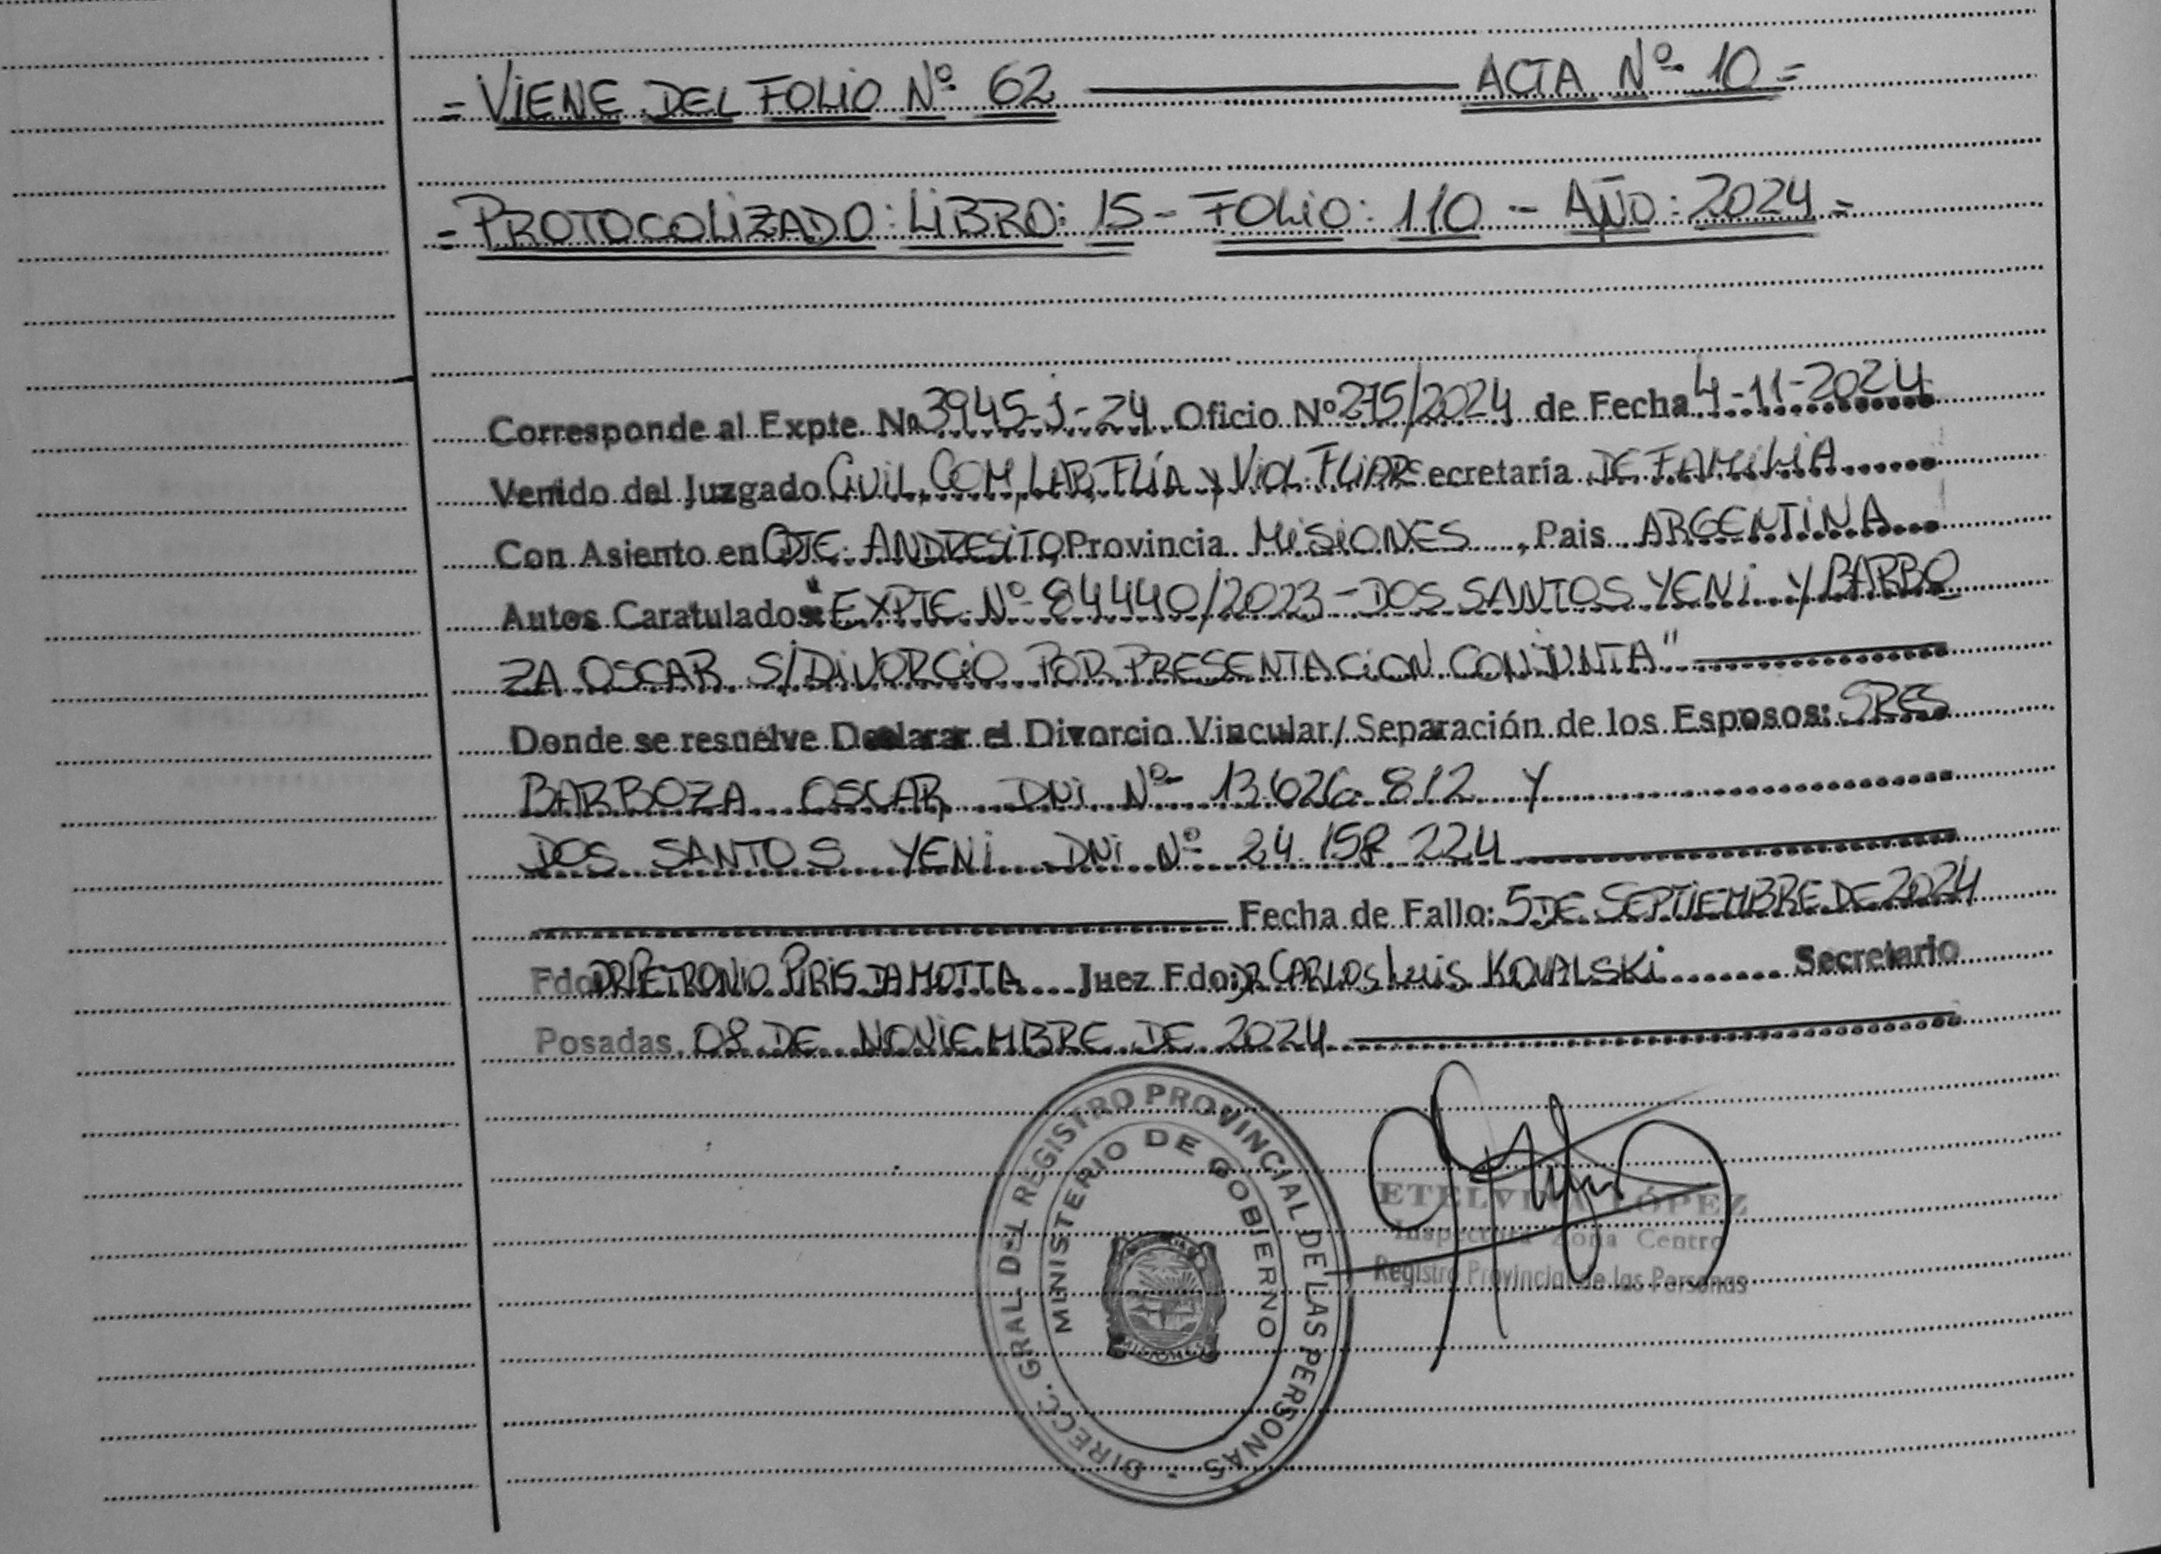 = VIENE DEL FOLIO Nº 62 ——— ACTA Nº 10 =
= PROTOCOLIZADO: LIBRO: 15 - FOLIO: 110 - AÑO: 2024 =
Corresponde al Expte Nº 3945-J-24 Oficio Nº 275/2024 de Fecha 4-11-2024
Venido del Juzgado CIVIL, COM, LAB, FLÍA y VIOL FLIAR Secretaría DE FAMILIA
Con Asiento en CDTE. ANDRESITO, Provincia MISIONES, Pais ARGENTINA
Autos Caratulados: "EXPTE Nº 84440/2023 - DOS SANTOS YENI Y BARBO
ZA OSCAR S/DIVORCIO POR PRESENTACION CONJUNTA"
Donde se resuelve Declarar el Divorcio Vincular/Separación de los Esposos: SRES
BARBOZA OSCAR, DNI Nº 13.626.812 Y
DOS SANTOS YENI DNI Nº 24 224
Fecha de Fallo: 5 DE SEPTIEMBRE DE 2024
Fdo DR PETRONIO PIRIS DA MOTTA Juez Fdo: DR CARLOS LUIS KOVALSKI Secretario
Posadas, 08 DE NOVIEMBRE DE 2024
DIRECC. GRAL. DEL REGISTRO PROVINCIAL DE LAS PERSONAS
MINISTERIO DE GOBIERNO
MISIONES
ETELVINA LÓPEZ
Inspectora Zona Centro
Registro Provincial de las Personas